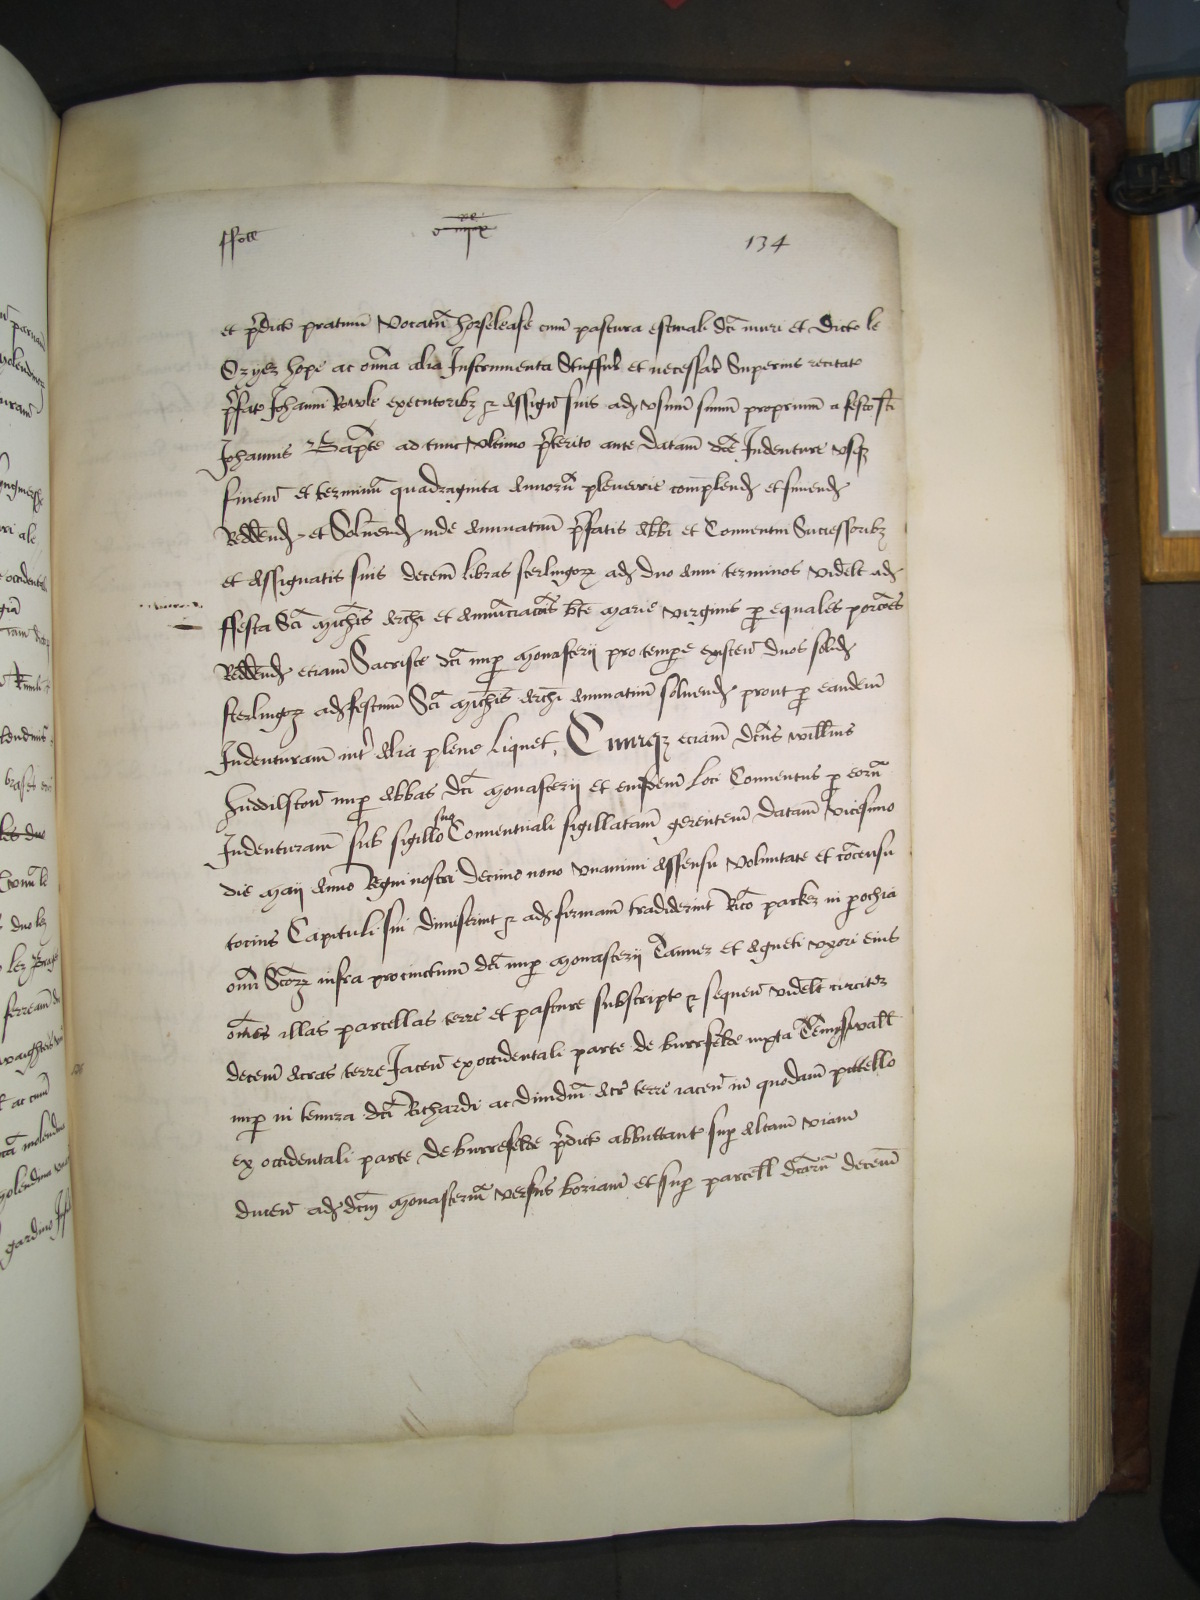 134
et p'dict pratum vocatu horselease cum pastura estimali dci muri et dicto le
hope ac omnia alia Instrumenta Stuffur et necessar Superius recitat
p'fato Johanni Rowle executoribz et assign suis ad usum suum proprium a festo sci
Johannis Bapte ad tunc ultimo p'terito ante datam dce Indenture usqz
finem et terminum quadraginta annoru plenarie complend et finiend
Reddend et Solvend inde annuatim p'fatis Abbi et Conventui Successoribz
et assignatis suis decem libras sterlingorz ad duo anni terminos videlt ad
ffesta Sci Michis Archi et Annuciacois bte Marie virginis p equales porcoes
Reddend eciam Sacriste dci nup Monasterij pro tempe existen duos solid
sterlingorz ad festum Sci Michis Archi annuatim solvend prout p eandem
Indenturam int' alia plene liquet, Cumqz eciam dcus Willms
Huddilston nup Abbas dci Monasterij et eiusdem loci Conventus p eoru
Indenturam sub sigillo suo Conventuali sigillatam gerentem datam vicesimo
die Maij Anno Regni nostri decimo nono unanimi assensu voluntate et cocensu
tocius Capituli sui dimiserint et ad firmam tradiderint Rico parker in pochia
omi Scorz infra procinctum dci nup Monasterij Tanner et Agneti uxori eius
omes illas parcellas terre et pasture subscript et sequen videlt circiter
decem Acras terre Jacen ex occidentali parte de burrefelde iuxta
nup in tenura dci Richardi ac dimidm acr terre iacen in quodam pittello
ex occidentali parte de burrefelde p'dict abbuttant sup Altam viam
ducen ad dcm Monasteriu versus boriam et sup parcell dcaru decem